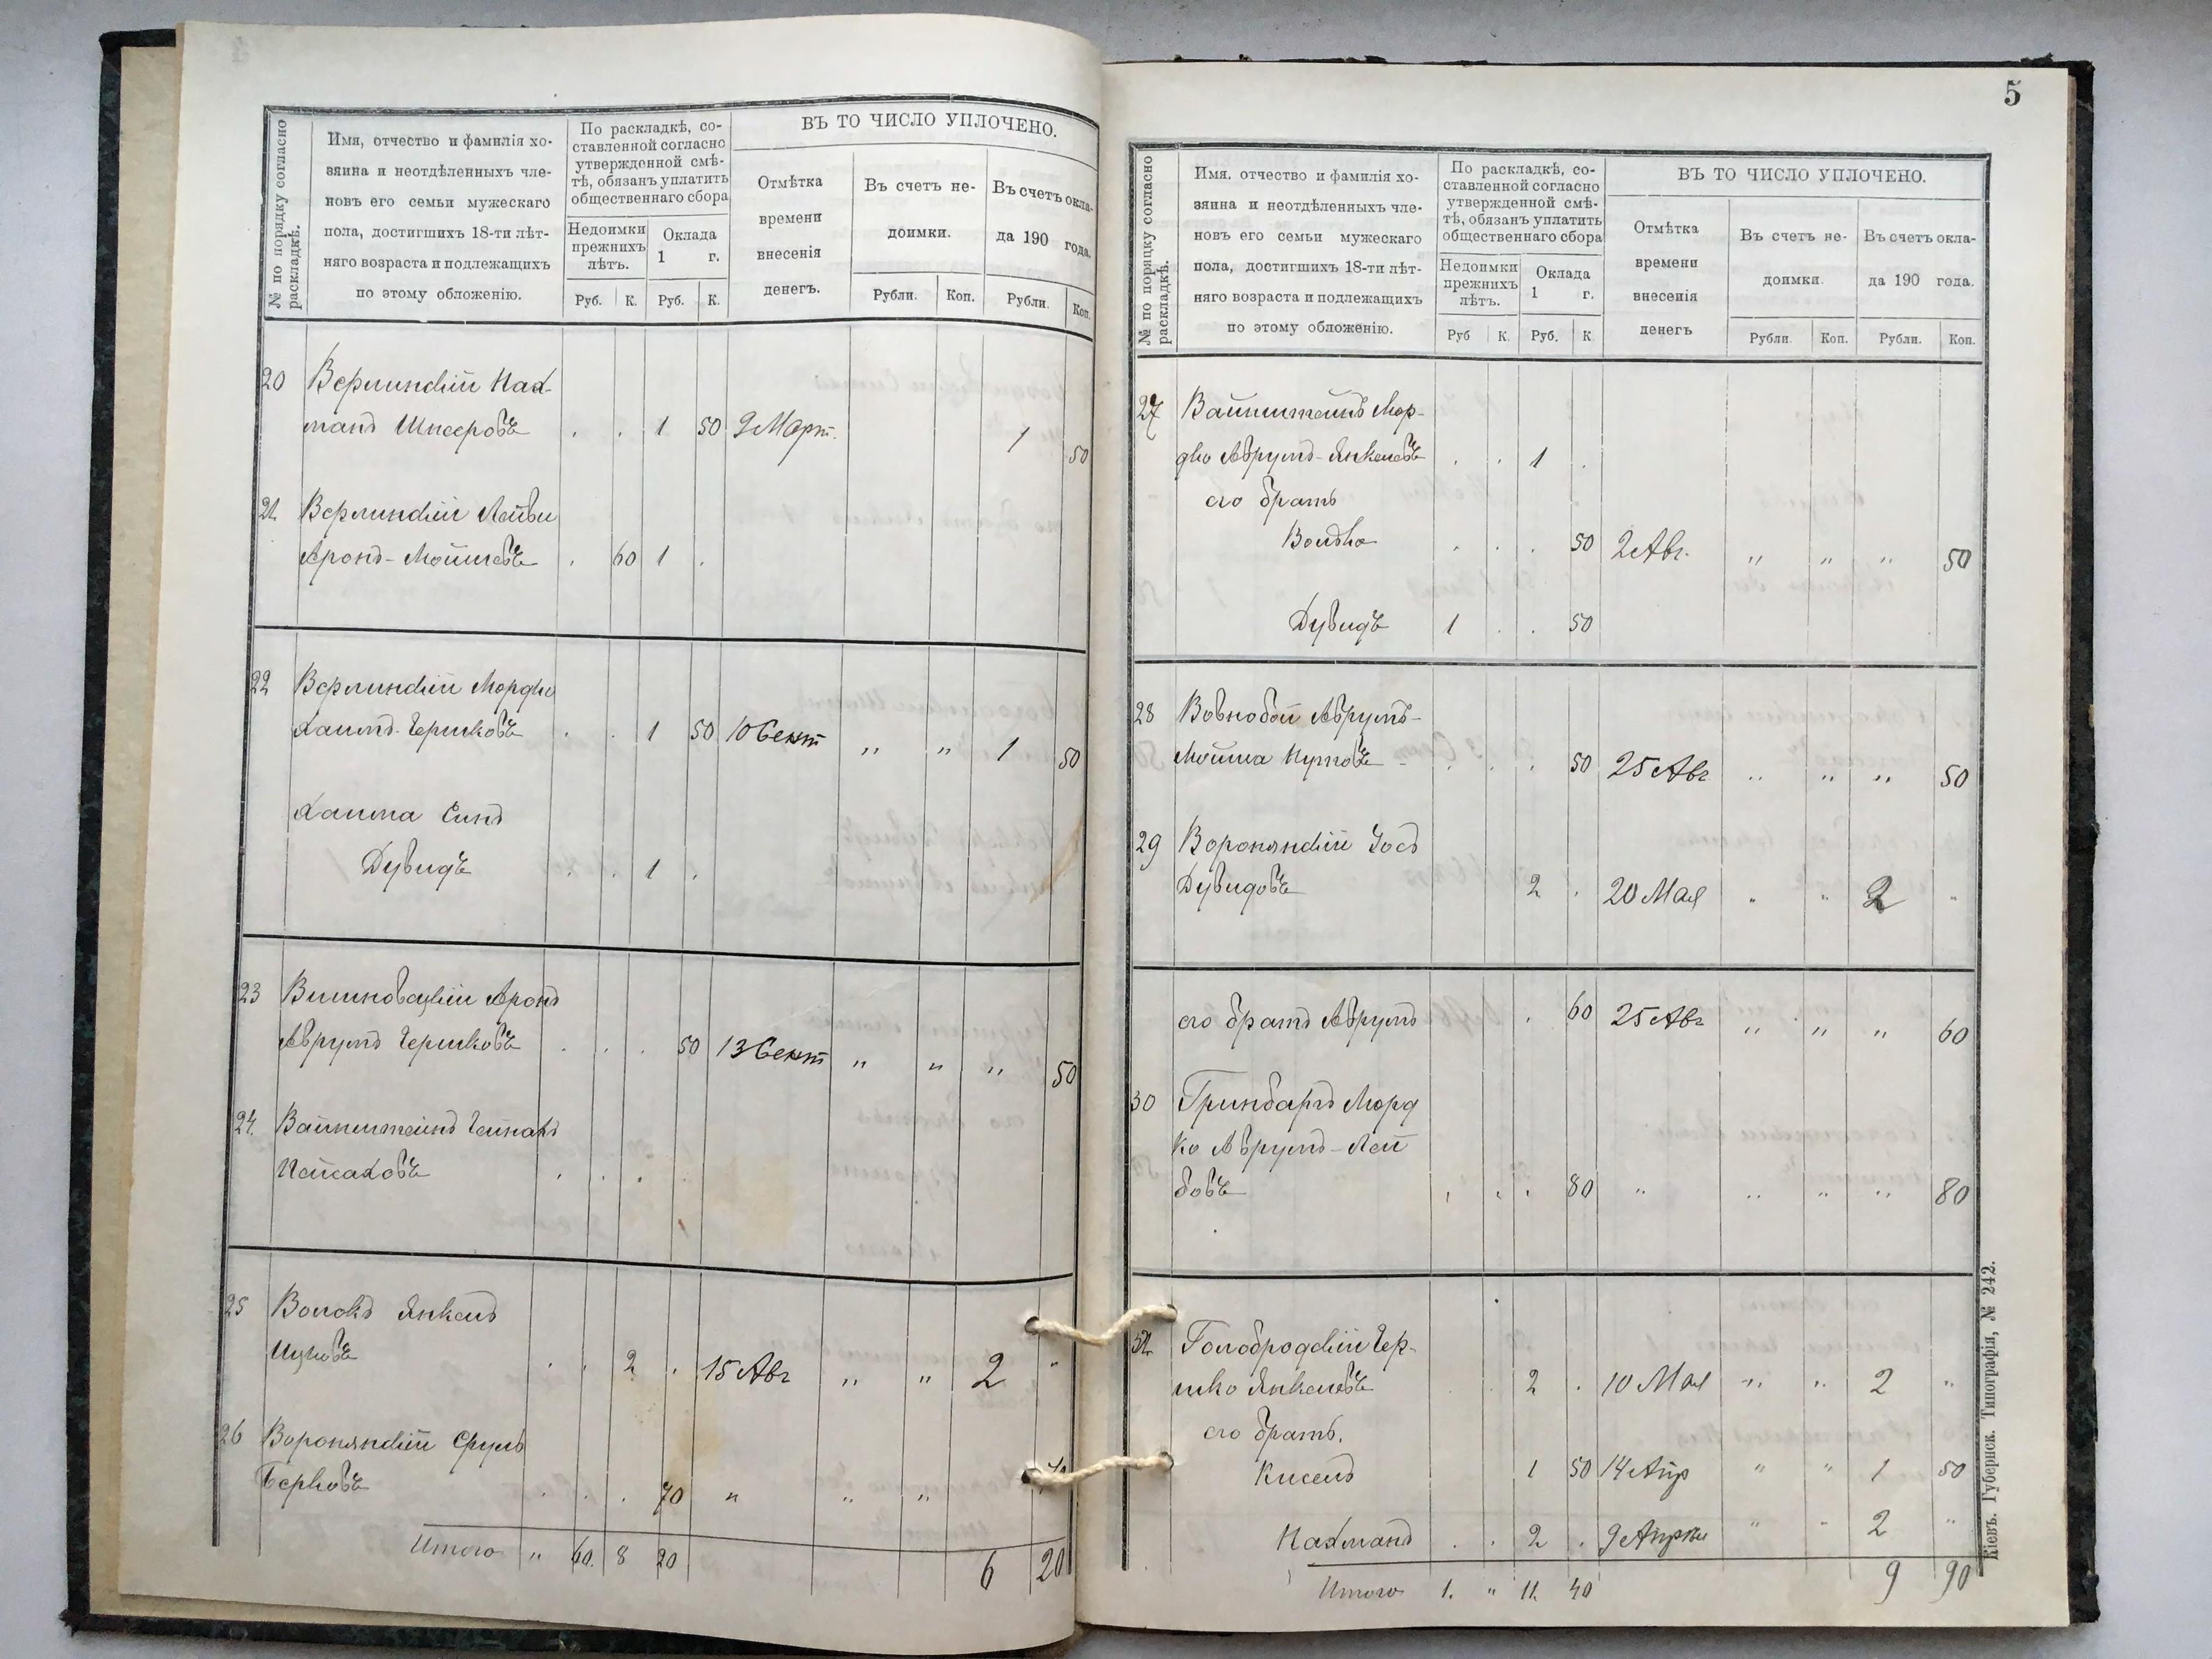 № по порядку согласно раскладкѣ.
Имя, отчество и фамилія хо-
зяина и неотдѣленныхъ чле-
новъ его семьи мужескаго
пола, достигшихъ 18-ти лѣт-
няго возраста и подлежащихъ
по этому обложенію.
По раскладкѣ, со-
ставленной согласно
утвержденной смѣ-
тѣ, обязанъ уплатить
общественнаго сбора
Недоимки прежнихъ лѣтъ.
Оклада 1 г.
Руб. К. Руб. К.
ВЪ ТО ЧИСЛО УПЛОЧЕНО.
Отмѣтка
времени
внесенія
денегъ.
Въ счетъ не-
доимки.
Въ счетъ окла-
да 190 года.
Рубли. Коп. Рубли. Коп.
20 Верлинскій Нах-
манъ Шнееровъ . . 1 50 9 Март. 1 50
21 Верлинскій Лейви
Аронъ-Мошковъ . 60 1 .
22 Верлинскій Мордко
Хаимъ-Гершковъ . . 1 50 10 Сент " " 1 50
Хаима Сынъ
Дувидъ . . 1 .
23 Вишновецкій Аронъ
Аврумъ Гершковъ . . . 50 13 Сент " " " 50
24. Вайнштейнъ
Пейсаховъ . . .
25 Волохъ Янкель
Ицковъ . . 2 . 15 Авг " " 2 "
26 Воронянскій Сруль
Берковъ . . . 70 " " "
Итого " 60. 8 20 6 20
5
№ по порядку согласно раскладкѣ.
Имя, отчество и фамилія хо-
зяина и неотдѣленныхъ чле-
новъ его семьи мужескаго
пола, достигшихъ 18-ти лѣт-
няго возраста и подлежащихъ
по этому обложенію.
По раскладкѣ, со-
ставленной согласно
утвержденной смѣ-
тѣ, обязанъ уплатить
общественнаго сбора
Недоимки прежнихъ лѣтъ.
Оклада 1 г.
Руб К. Руб. К
ВЪ ТО ЧИСЛО УПЛОЧЕНО.
Отмѣтка
времени
внесенія
денегъ
Въ счетъ не-
доимки.
Въ счетъ окла-
да 190 года.
Рубли. Коп. Рубли. Коп.
27 Вайнштейнъ Мор-
дко Аврумъ-Янкелевъ . . 1 .
его братъ
Волько . . . 50 2 Авг. " " " 50
Дувидъ 1 . . 50
28 Вовнобой Аврумъ-
Мошка . . . 50 25 Авг " " " 50
29 Воронянскій Іось
Дувидовъ 2 . 20 Мая " " 2 "
его братъ Аврумъ . 60 25 Авг " " " 60
30 Гринбаргъ Морд
ко Аврумъ-Лей
бовъ . . . 80 " " " " 80
Голобродскій Гер-
шко Янкелевъ 2 . 10 Мая " " 2 "
его братъ.
Кисель 1 50 14 Апр " " 1 50
Нахманъ . . 2 . 9 " " 2 "
Итого 1. " 11. 40 9 90
Кіевъ. Губернск. Типографія, № 242.